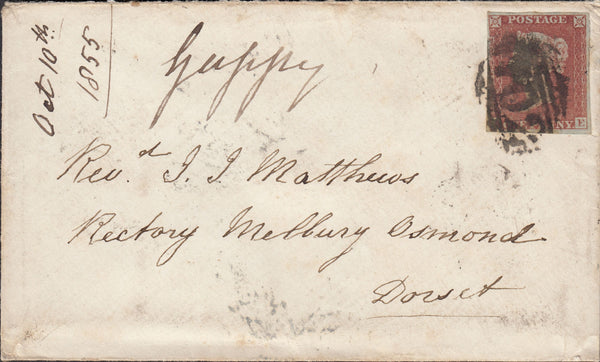 Oct 10th
1855
Guppy
POSTAGE
NY E
Revd J. J. Matthews
Rectory Melbury Osmond
Dorset